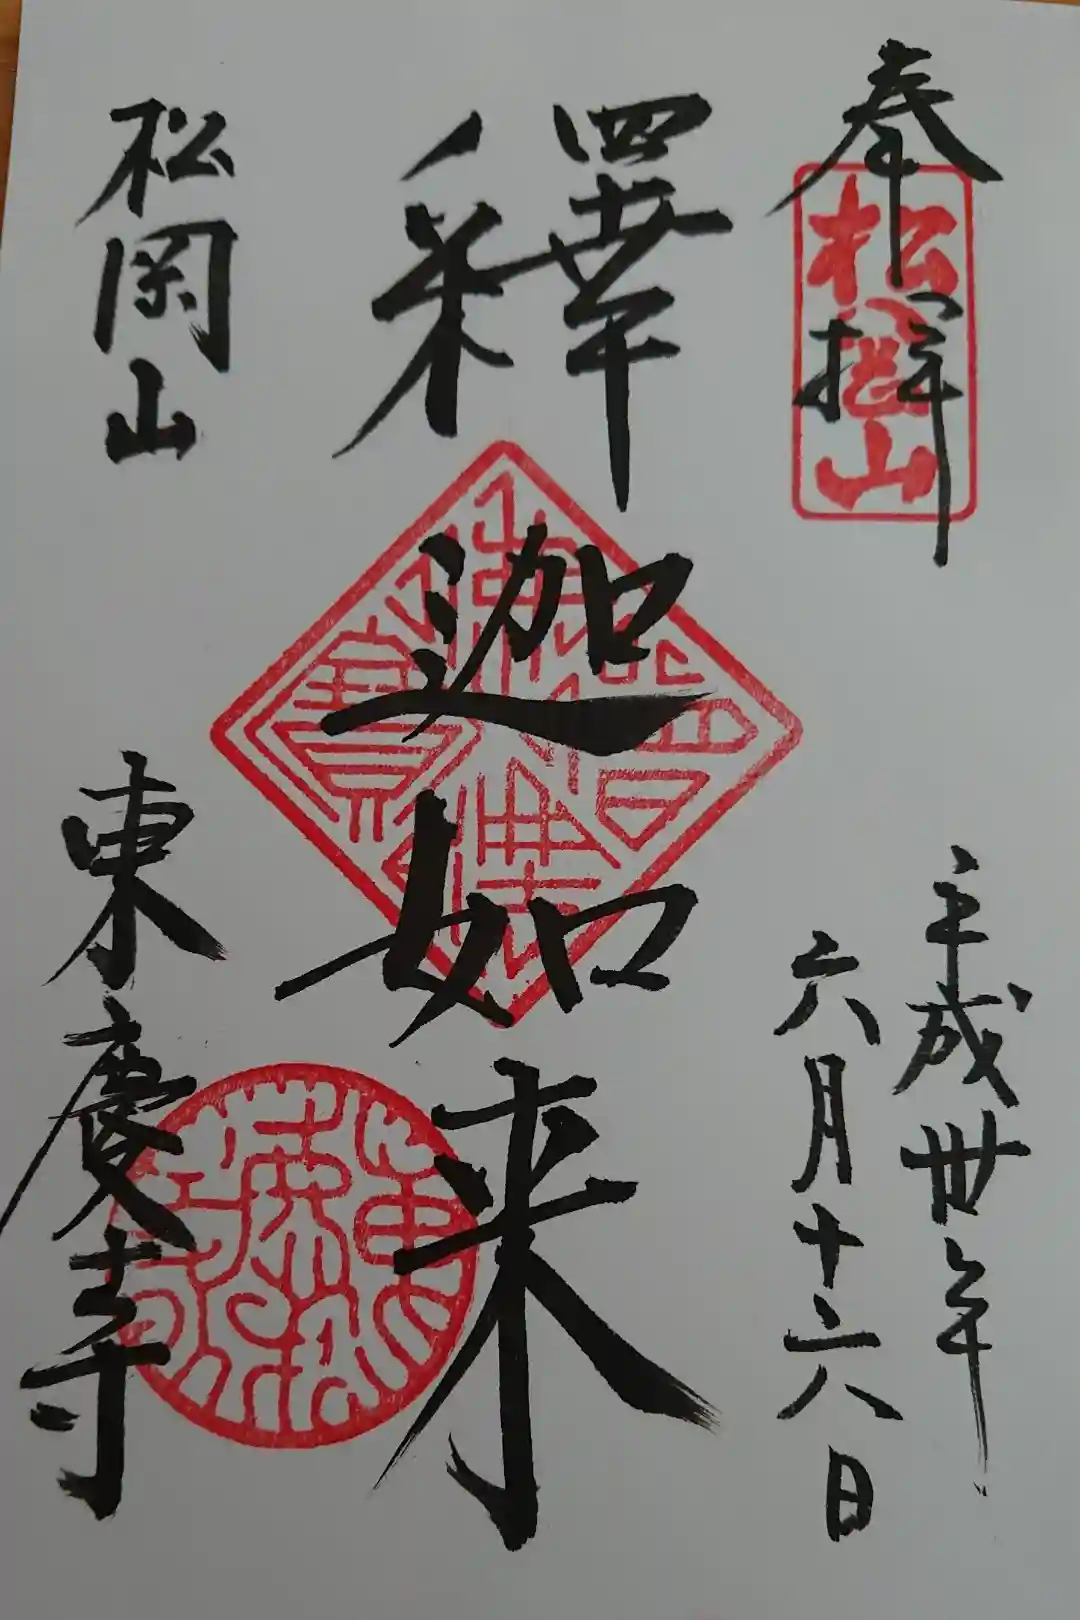 奉拝
松岡山
平成丗年
六月十六日
釋迦如来
松岡山
東慶寺